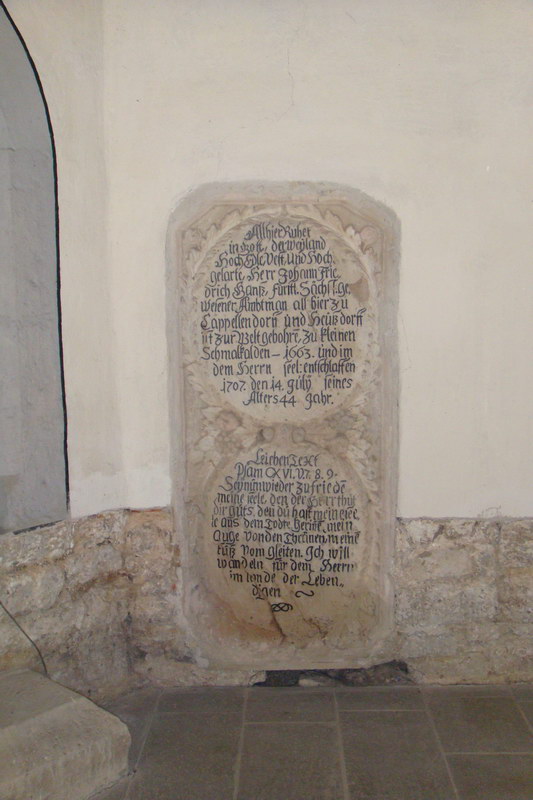 Allhier Ruhet
in Gott, der weyland
Hoch Edle Vest und Hoch.
gelarte, Herr Johann Frie
drich Hantz, Fürstl. Sächs. ge,
wesener Ambtman all hier zu
Cappellendorff und Heüsdorff
ist zur Welt gebohrē, zu kleinen
Schmalkalden – 1663. und im
dem Herrn seel: entschlaffen
1707. den 14. July seines
Alters 44 Jahr.
Leichen Text
Psam CXVI. V. 8. 9.
Sey nun wieder zu friedē
meine seele, den der Herr thut
dir guts, den du hast meine see,
le aus dem Todte gerissē, mein
Auge von den Threnen, meine
füß vom gleiten. Ich will
wandeln für dem Herrn
im lande der Leben.
digen